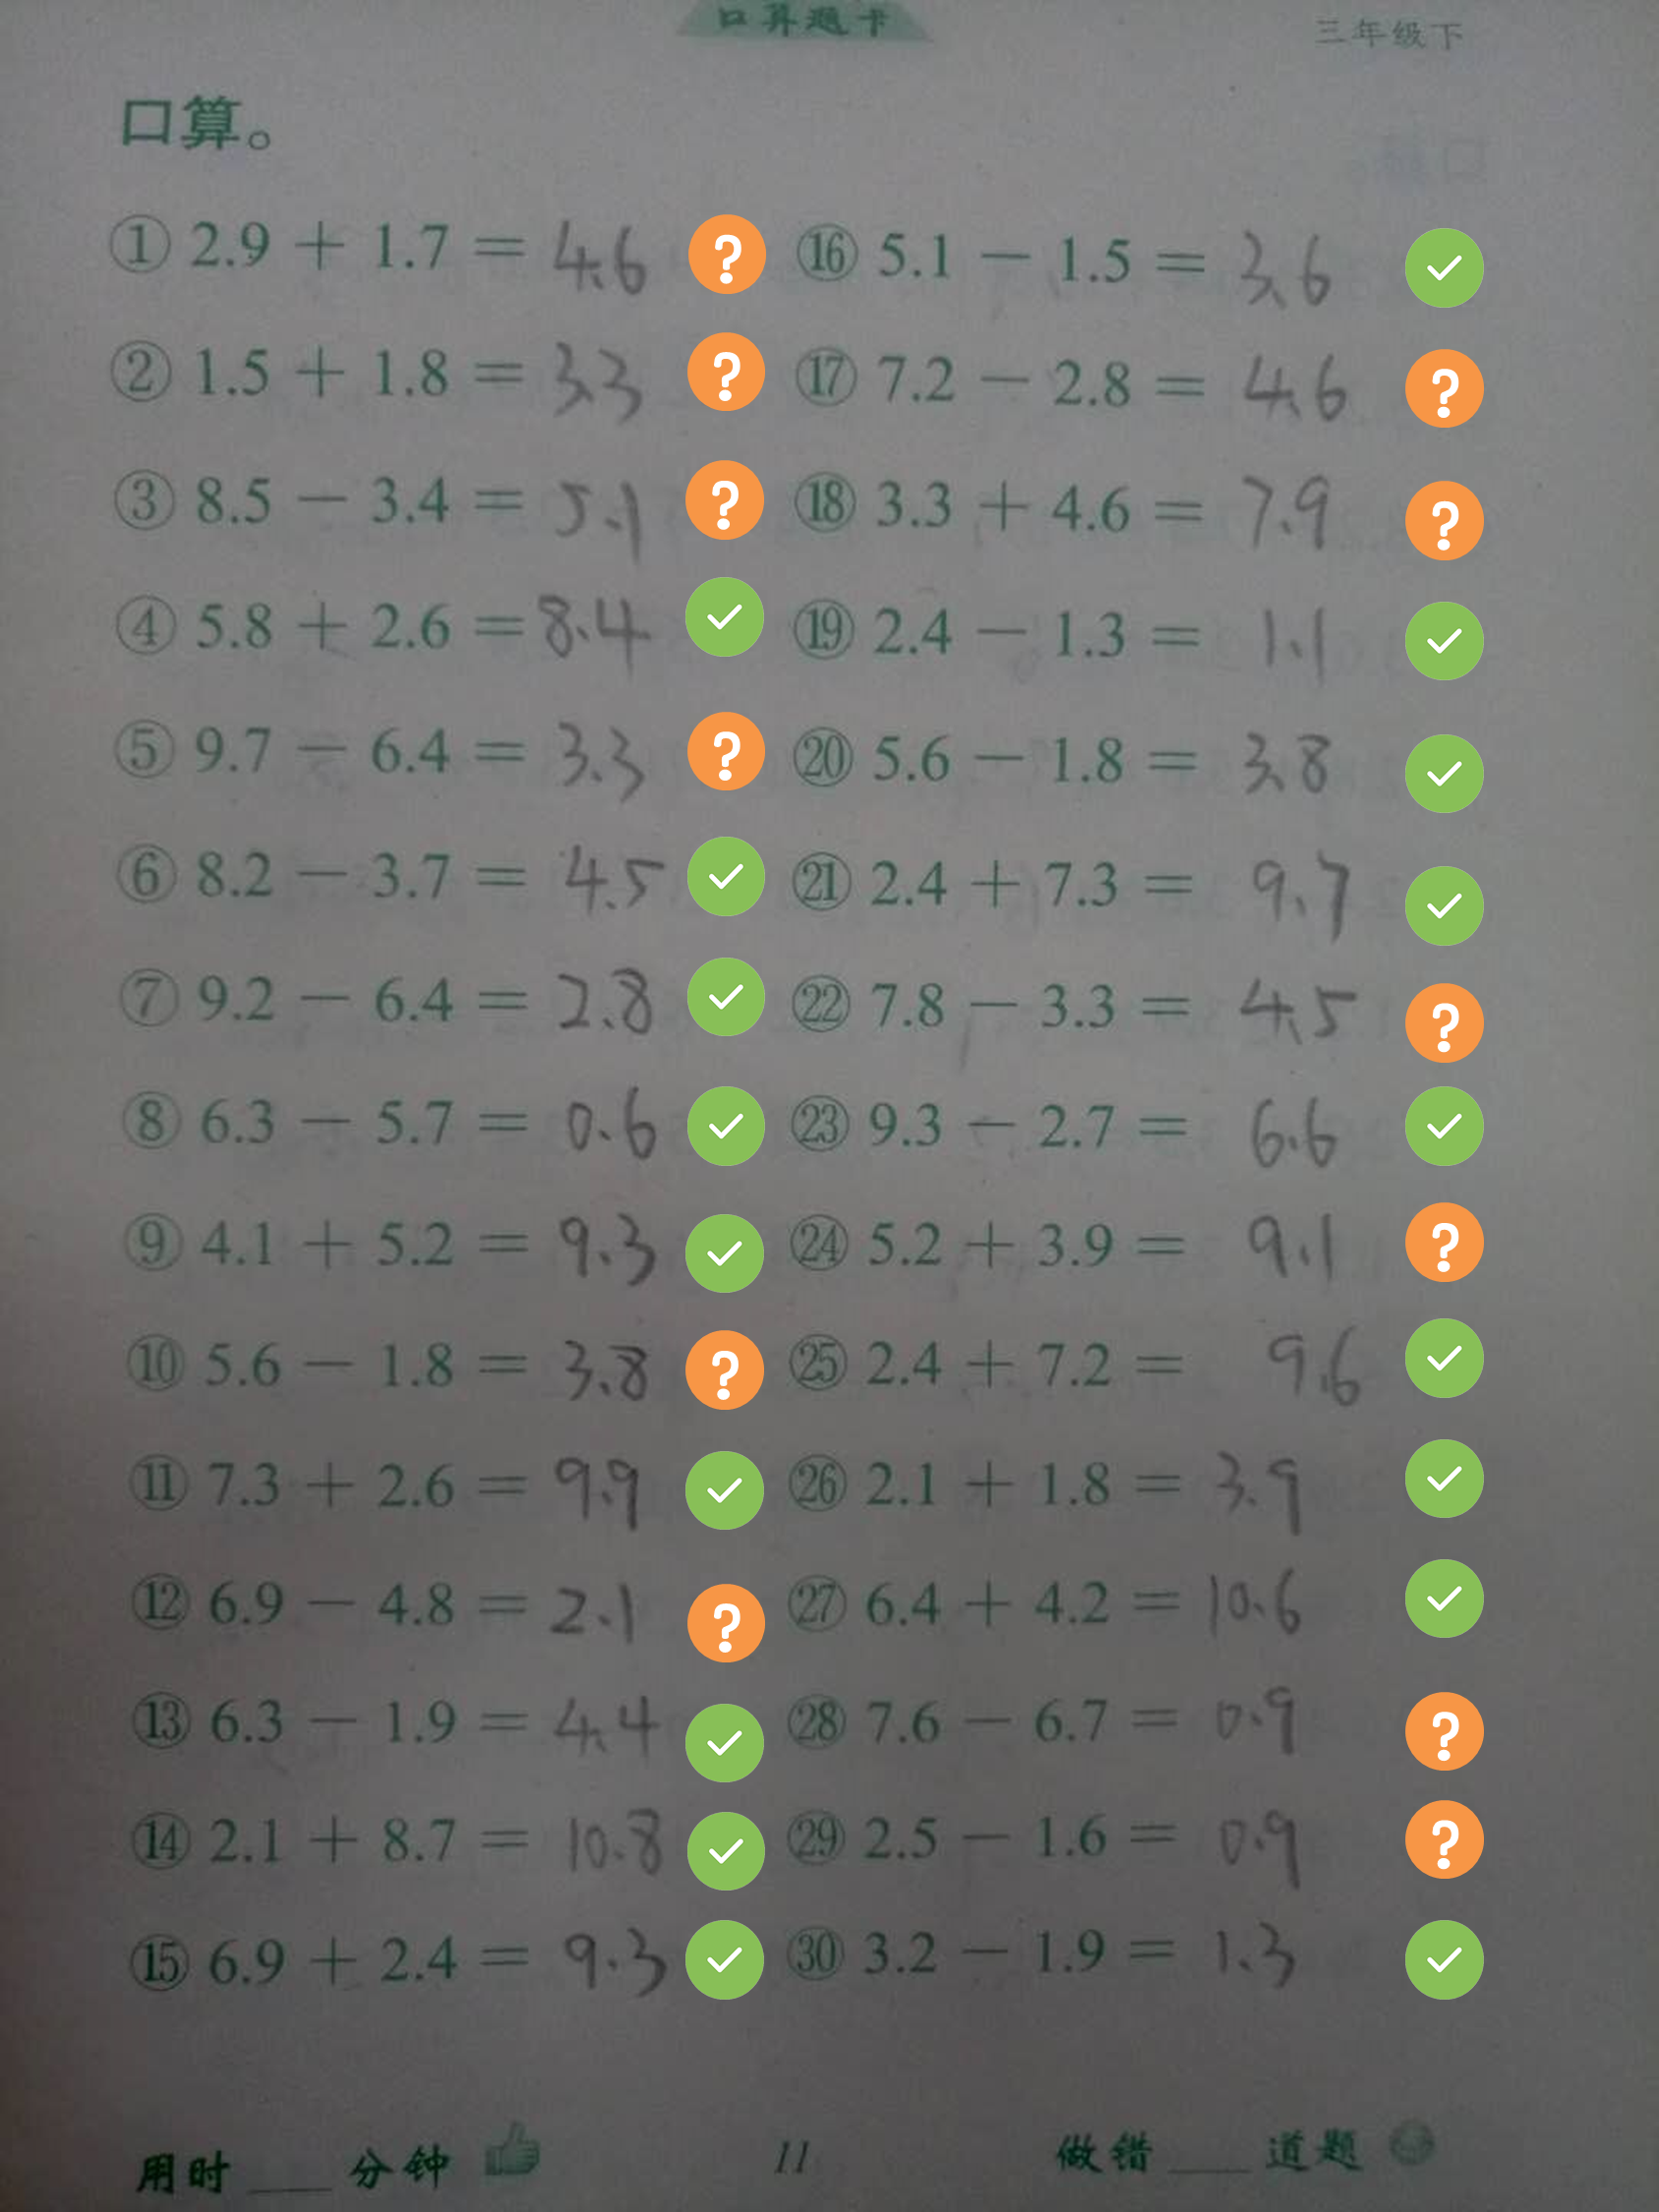 口算题卡
三年级下
口算。
① 2.9 + 1.7 = 4.6
② 1.5 + 1.8 = 3.3
③ 8.5 - 3.4 = 5.1
④ 5.8 + 2.6 = 8.4
⑤ 9.7 - 6.4 = 3.3
⑥ 8.2 - 3.7 = 4.5
⑦ 9.2 - 6.4 = 2.8
⑧ 6.3 - 5.7 = 0.6
⑨ 4.1 + 5.2 = 9.3
⑩ 5.6 - 1.8 = 3.8
⑪ 7.3 + 2.6 = 9.9
⑫ 6.9 - 4.8 = 2.1
⑬ 6.3 - 1.9 = 4.4
⑭ 2.1 + 8.7 = 10.8
⑮ 6.9 + 2.4 = 9.3
⑯ 5.1 - 1.5 = 3.6
⑰ 7.2 - 2.8 = 4.6
⑱ 3.3 + 4.6 = 7.9
⑲ 2.4 - 1.3 = 1.1
⑳ 5.6 - 1.8 = 3.8
㉑ 2.4 + 7.3 = 9.7
㉒ 7.8 - 3.3 = 4.5
㉓ 9.3 - 2.7 = 6.6
㉔ 5.2 + 3.9 = 9.1
㉕ 2.4 + 7.2 = 9.6
㉖ 2.1 + 1.8 = 3.9
㉗ 6.4 + 4.2 = 10.6
㉘ 7.6 - 6.7 = 0.9
㉙ 2.5 - 1.6 = 0.9
㉚ 3.2 - 1.9 = 1.3
用时___分钟
11
做错___道题